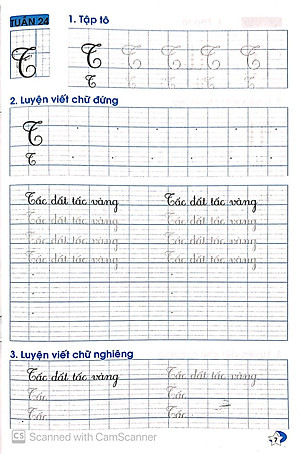 TUẦN 24
1. Tập tô
T T T T T T
T T T T T
2. Luyện viết chữ đứng
T
T
Tấc đất tấc vàng Tấc đất tấc vàng
Tấc đất tấc vàng Tấc đất tấc vàng
Tấc đất tấc vàng Tấc đất tấc vàng
Tấc đất tấc vàng Tấc đất tấc vàng
3. Luyện viết chữ nghiêng
Tấc đất tấc vàng Tấc đất tấc vàng
Tấc Tấc
Tấc Tấc
CS Scanned with CamScanner